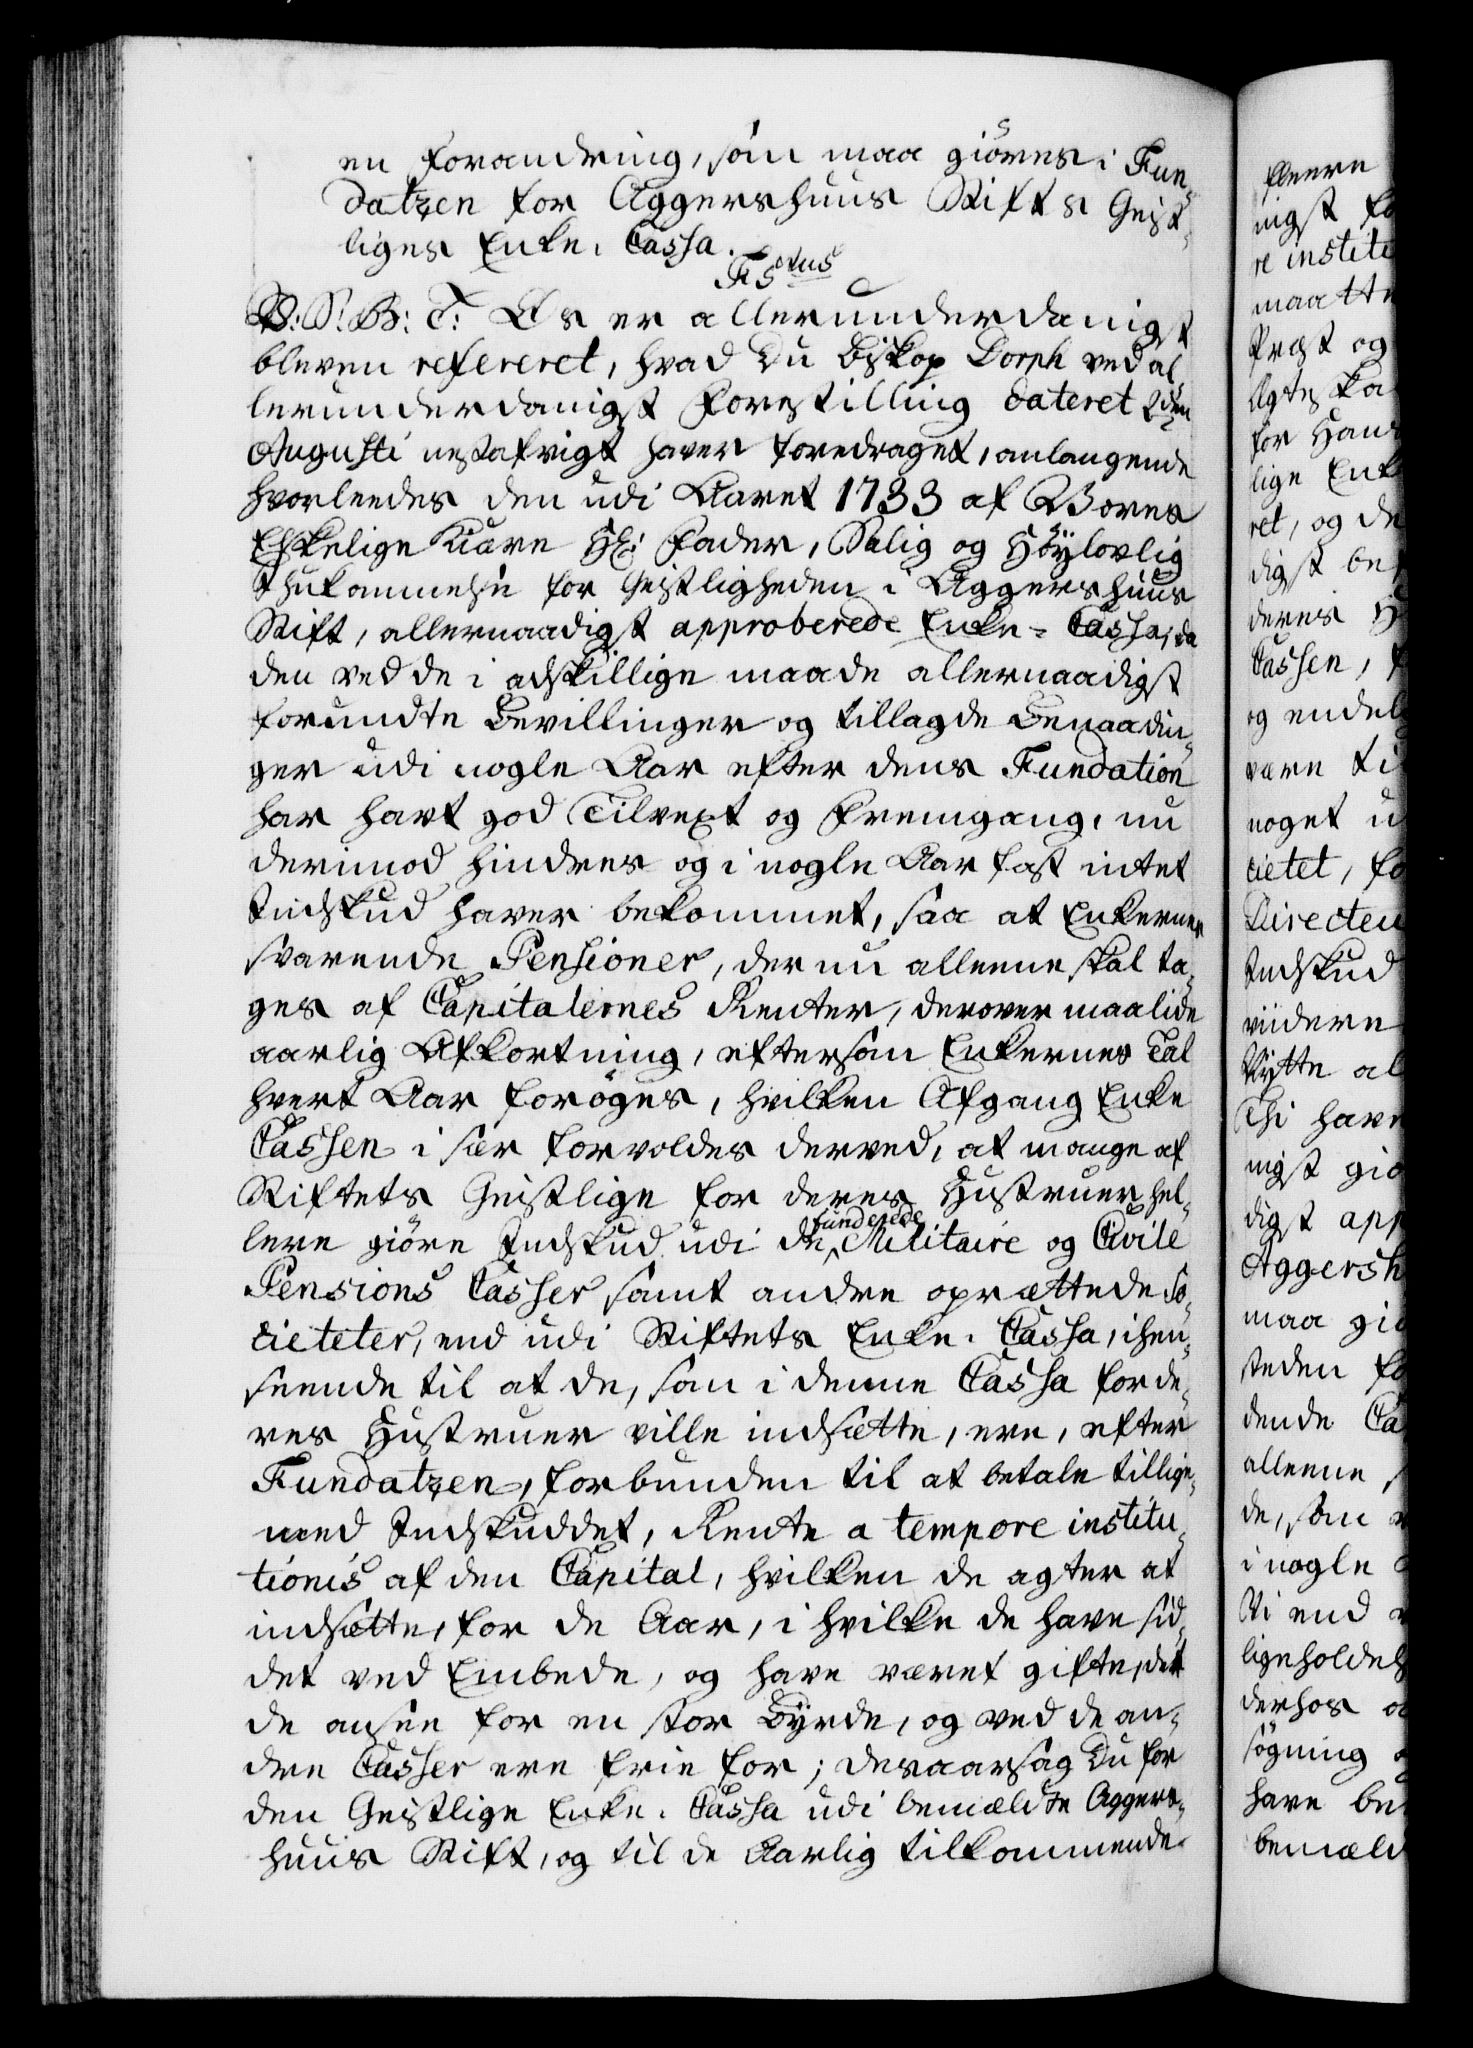 en Forandring, som maa giøres i Fun-
datzen for Aggershuus Stifts Geist-
liges Enke-Cassa.
F 5tus
V: S: G: T: Os er allerunderdanigst
bleven refereret, hvad Du Biskop Dorph ved al-
lerunderdanigst Forestilling dateret
Augusti nestafvigt haver foredraget, anlangende
hvorleedes den udi Aaret 1733 af Vores
Elskelige Kiære Hr: Fader, Salig og Høylovlig
Ihukommelse for Geistligheden i Aggershuus
Stift, allernaadigst approberede Enke-Cassa, da
den ved de i adskillige maade allernaadigst
forundte Bevillinger og tillagde Benaadin-
ger udi nogle Aar efter dens Fundation
har havt god Tilvext og Fremgang, nu
derimod hindres og i nogle Aar fast intet
Indskud haver bekommet, saa at Enkernes
svarende Pensioner, der nu alleene skal ta-
ges af Capitalernes Renter, derover maa lide
aarlig Afkortning, eftersom Enkernes Tal
hvert Aar forøges, hvilken Afgang Enke
Cassen i sær forvoldes derved, at mange af
Stiftets Geistlige for deres Hustruer hel-
lere giøre Indskud udi de funderede Militaire og Civile
Pensions Casser samt andre oprættede So-
cieteter, end udi Stiftets Enke-Cassa, i hen-
seende til at de, som i denne Cassa for de-
res Hustruer ville indsætte, ere, efter
Fundatzen, forbunden til at betale tillige-
med Indskuddet, Rente a tempore institu-
tionis af den Capital, hvilken de agter at
indsætte, for de Aar, i hvilke de have sid-
det ved Embede, og have været gifte, det
de ansee for en stor Byrde, og ved de an-
dre Casser ere frie for; desaarsag Du for
den Geistlige Enke-Cassa udi bemældte Aggers-
huus Stift, og til de Aarlig tilkommende